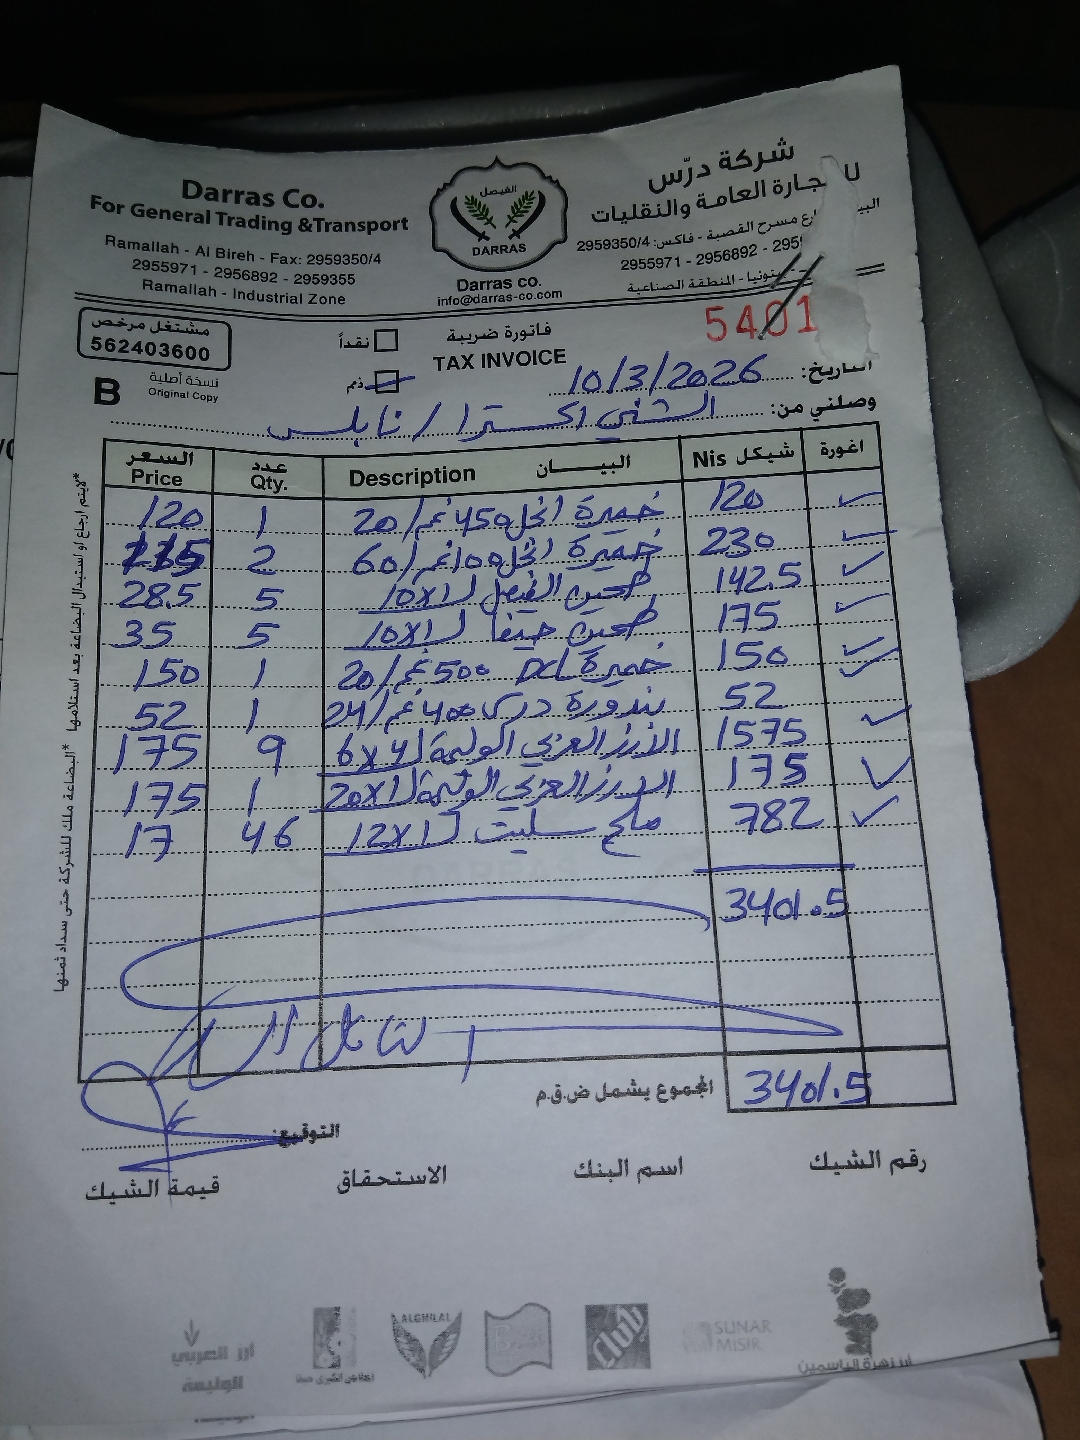 Darras Co.
For General Trading &Transport
Ramallah - Al Bireh - Fax: 2959350/4
2955971 - 2956892 - 2959355
Ramallah - Industrial Zone
الفيصل
DARRAS
Darras co.
info@darras-co.com
شركة درّس
جارة العامة والنقليات
مسرح القصبة - فاكس: 2959350/4
2955971 - 2956892 - 295
المنطقة الصناعية
مشتغل مرخص
562403600
نقداً
ذمم
فاتورة ضريبة
TAX INVOICE
5401
B
نسخة أصلية
Original Copy
التاريخ: 10/3/2026
وصلني من: الشني اكسترا / نابلس
السعر عدد البيــــان شيكل اغورة
Price Qty. Description Nis
120 1 خميرة انجل 450غم/20 120
2 خميرة انجل 100غم/60 230
28.5 5 طحين الفيصل 10x1 142.5
35 5 طحين حيفا 10x1 175
150 1 خميرة 500غم/20 150
52 1 بندورة درس 400غم/24 52
175 9 الأرز العربي الوليمة 6x4 1575
175 1 الارز العربي الوليمة 20x1 175
17 46 ملح سليت 12x1 782
3401.5
المجموع يشمل ض.ق.م 3401.5
التوقيع:
رقم الشيك اسم البنك الاستحقاق قيمة الشيك
*البضاعة ملك للشركة حتى سداد ثمنها *لايتم ارجاع او استبدال البضاعة بعد استلامها
أرز العربي
الوليمة
ALGHILAL
SUNAR
MISIR
ارز زهرة الياسمين